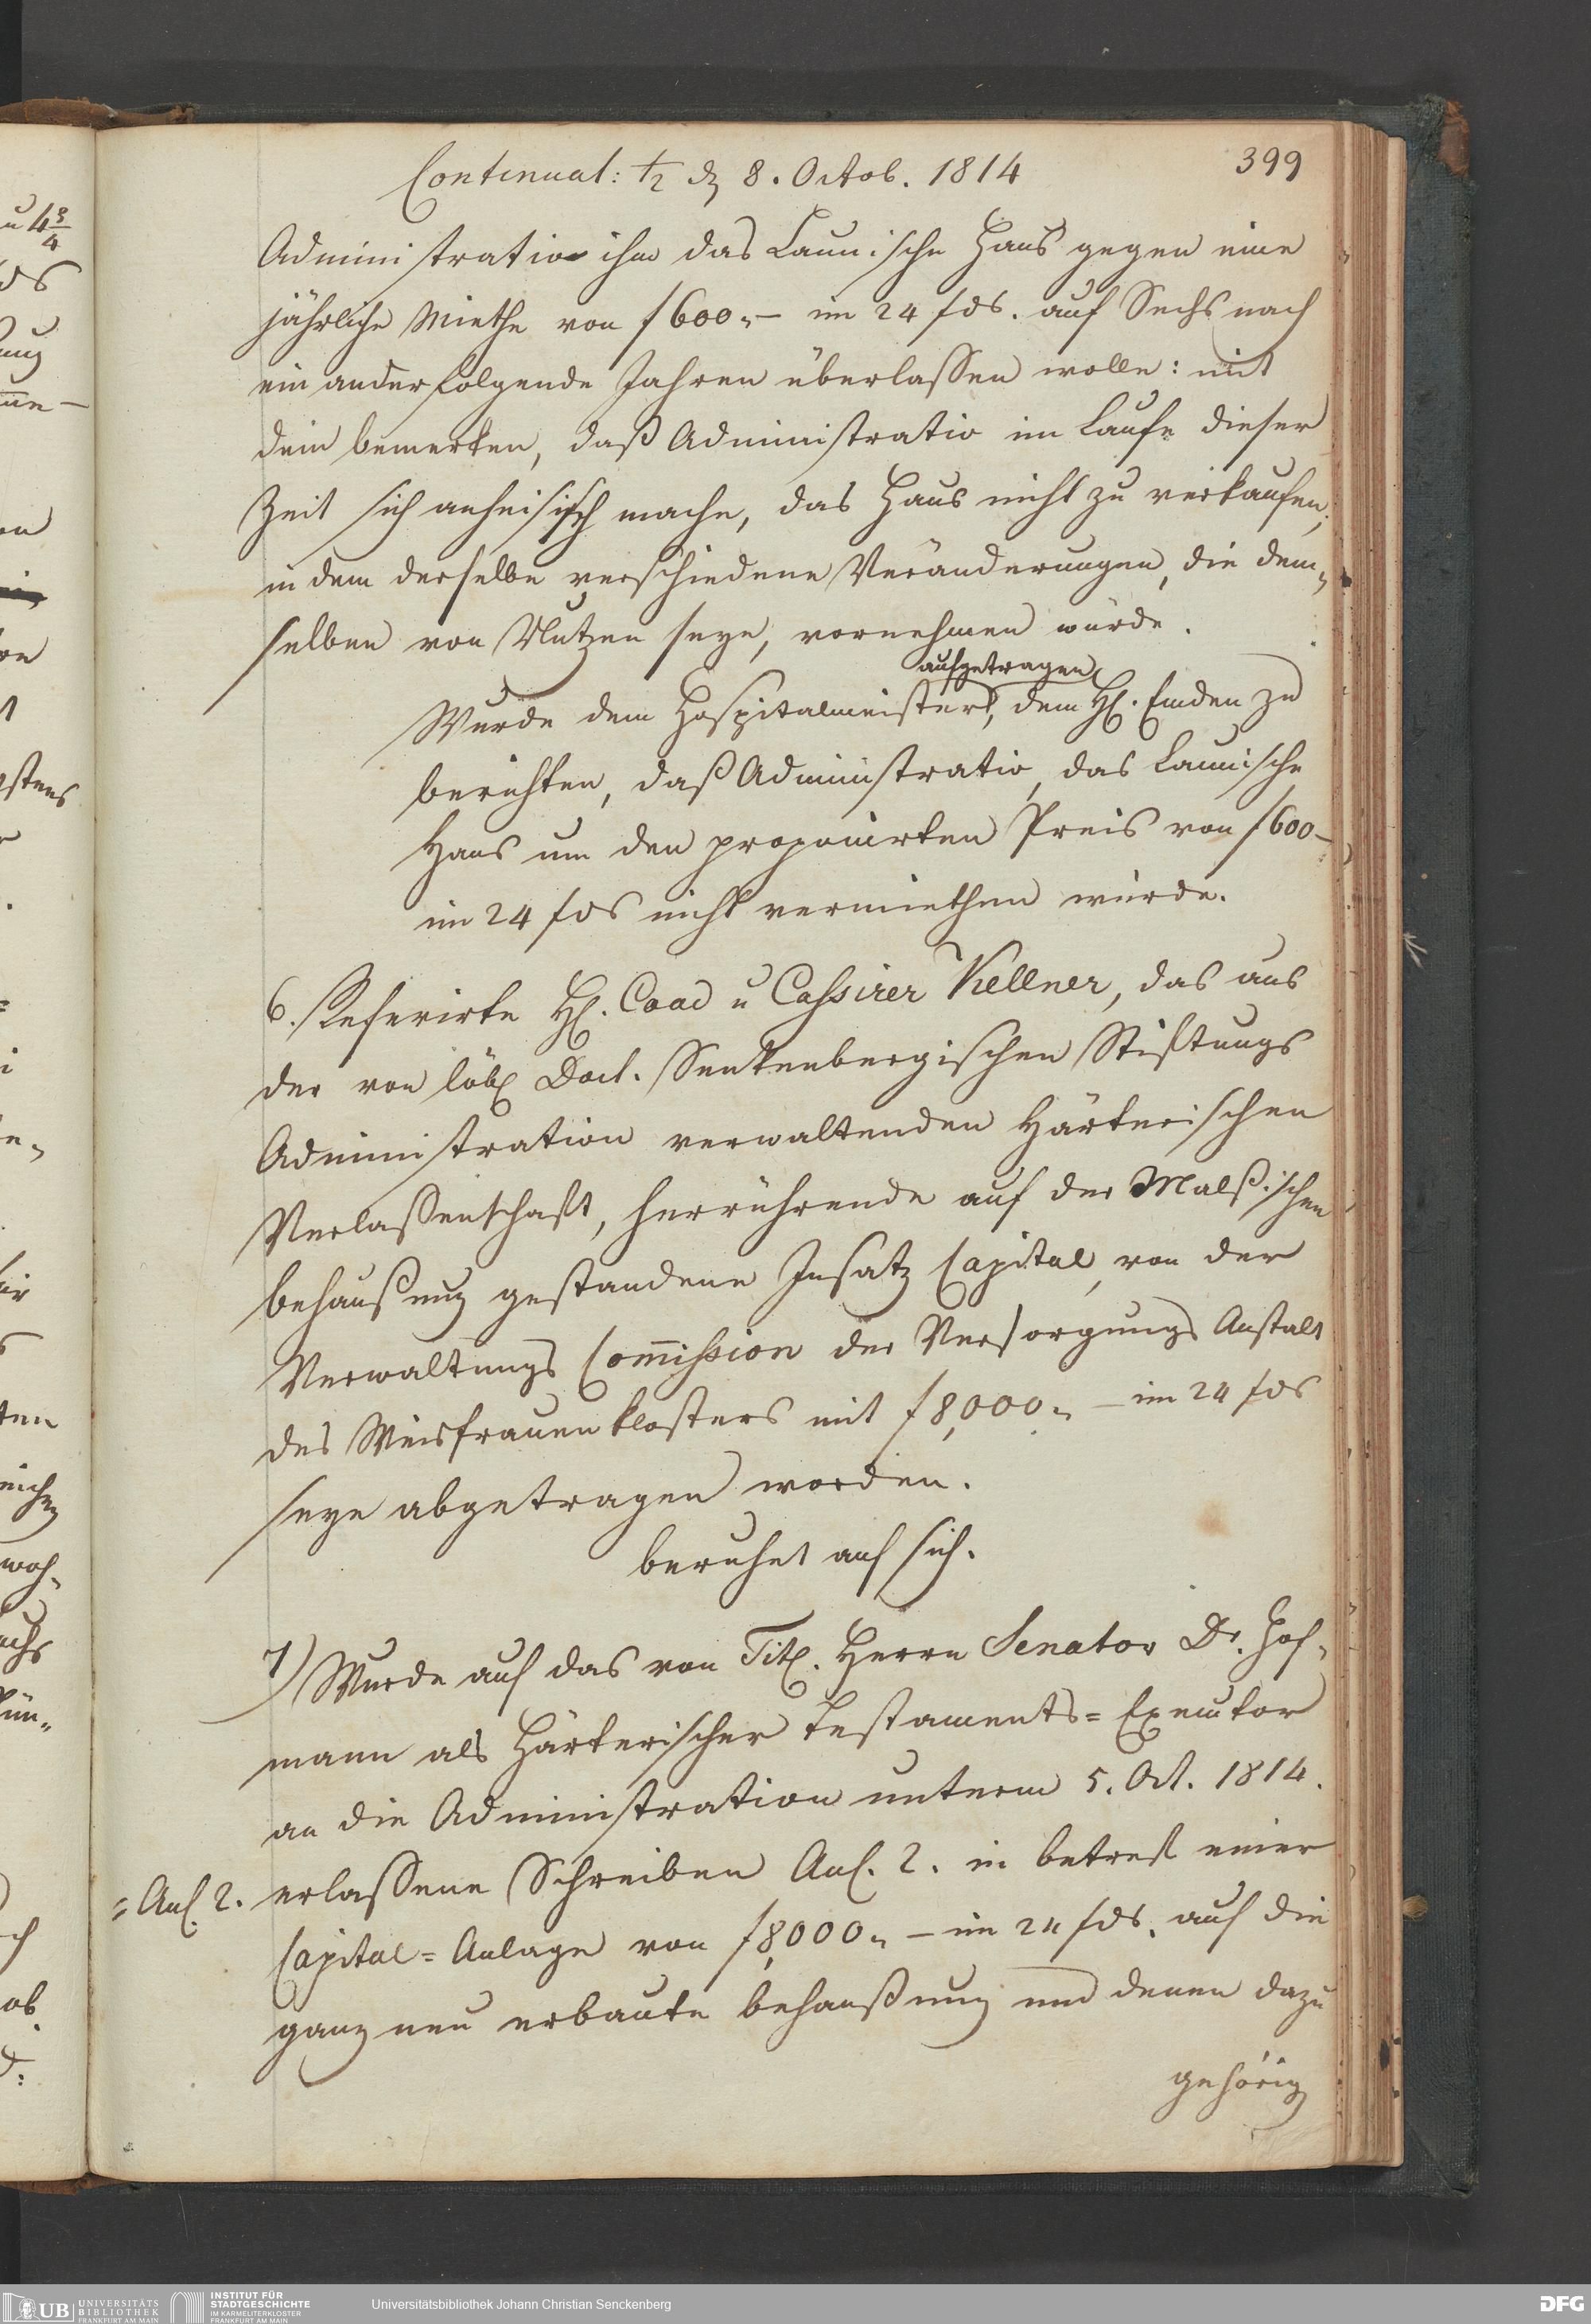 Continuat: ½ d. 8. Octob. 1814
399
Administratio ihm das Launische Haus gegen eine
jährliche Miethe von f 600.- im 24 fds. auf Sechs nach
ein ander folgende Jahren überlassen wolle: mit
dem bemerken, daß Administratio im Laufe dieser
Zeit sich anheisisch mache, das Haus nicht zu verkaufen,
in dem derselbe verschiedene Veränderungen, die dem-
selben von Nutzen seye, vornehmen würde.
aufgetragen
Wurde dem Hospitalmeister, dem H. Emden zu
berichten, daß Administratio, das Launische
Haus um den proponirten Preis von f 600-
im 24 fds nicht vermiethen würde.
6. Referirte H. Coad u Cassirer Kellner, das aus
der von löbl Doct. Senkenbergischen Stiftungs
Administration verwaltenden Härterischen
Verlassenschaft, herrührende auf der Malßischen
behaußung gestandene Insatz Capital, von der
Verwaltungs Com̄ission der Versorgungs Anstalt
des Weisfrauenklosters mit f 8,000.- im 24 fds
seye abgetragen worden.
beruhet auf sich.
7) Wurde auf das von Titl. Herrn Senator Dr. Hof-
mann als Härterischer Testaments= Executor
an die Administration unterm 5. Oct. 1814.
= Anl. 2.
erlassene Schreiben Anl. 2. in betreff einer
Capital= Anlage von f 8,000.- im 24 fds. auf die
ganz neu erbaute behaußung und denen dazu
gehörig
UB UNIVERSITÄTS
BIBLIOTHEK
FRANKFURT AM MAIN
INSTITUT FÜR
STADTGESCHICHTE
IM KARMELITERKLOSTER
FRANKFURT AM MAIN
Universitätsbibliothek Johann Christian Senckenberg
DFG